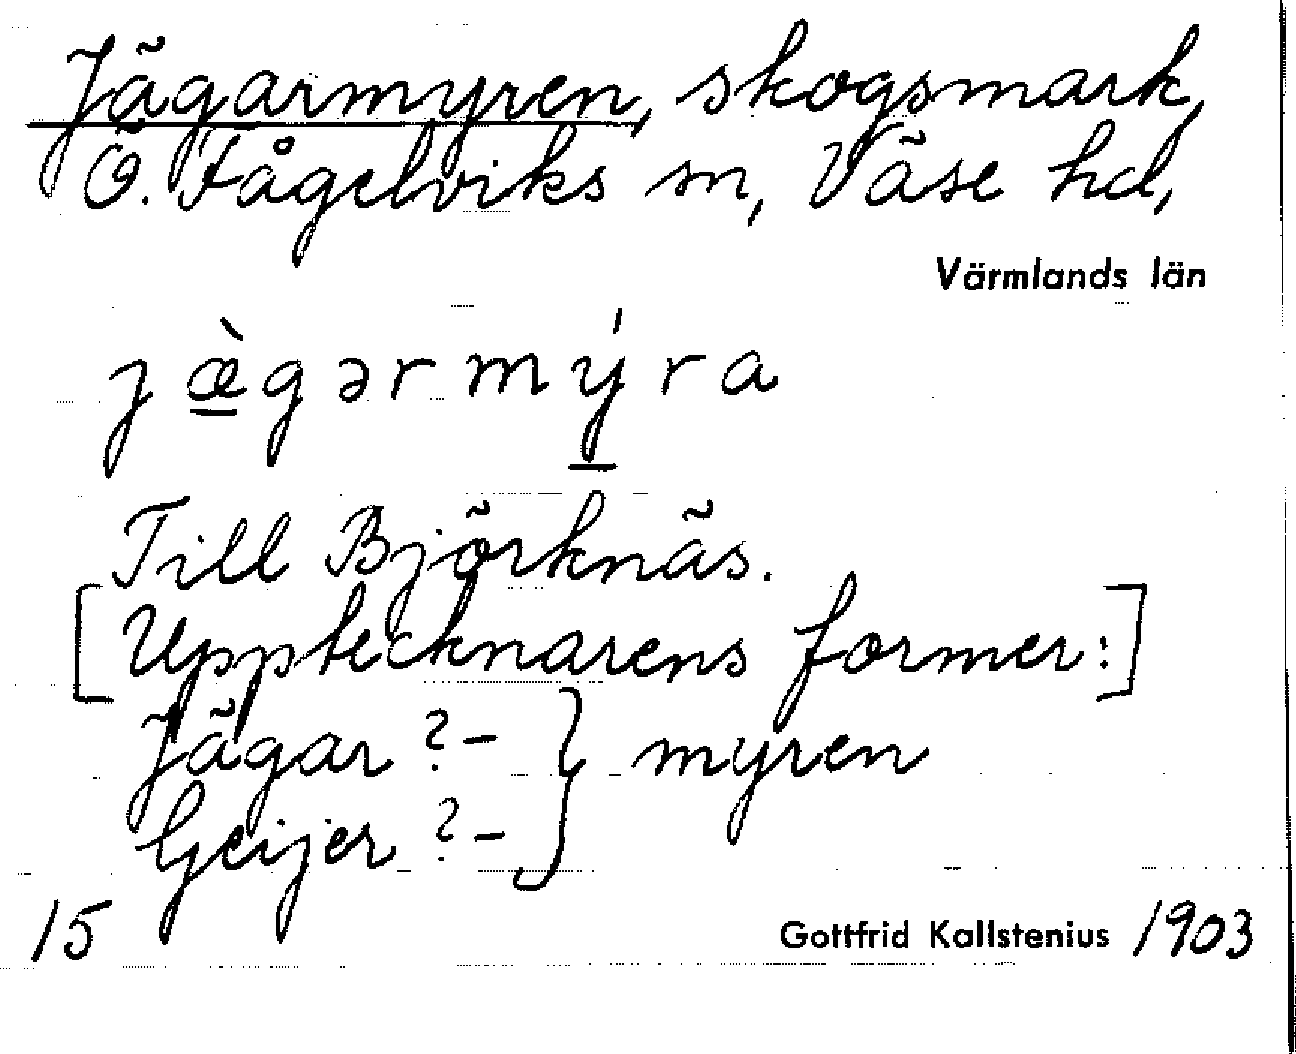 Jägarmyren, skogsmark,
Ö. Fågelviks sn, Väse hd,
Värmlands län
jæ̱̀gərmý̱ra
Till Björknäs.
[Upptecknarens former:]
Jägar?- } myren
Geijer?-
15 Gottfrid Kallstenius 1903